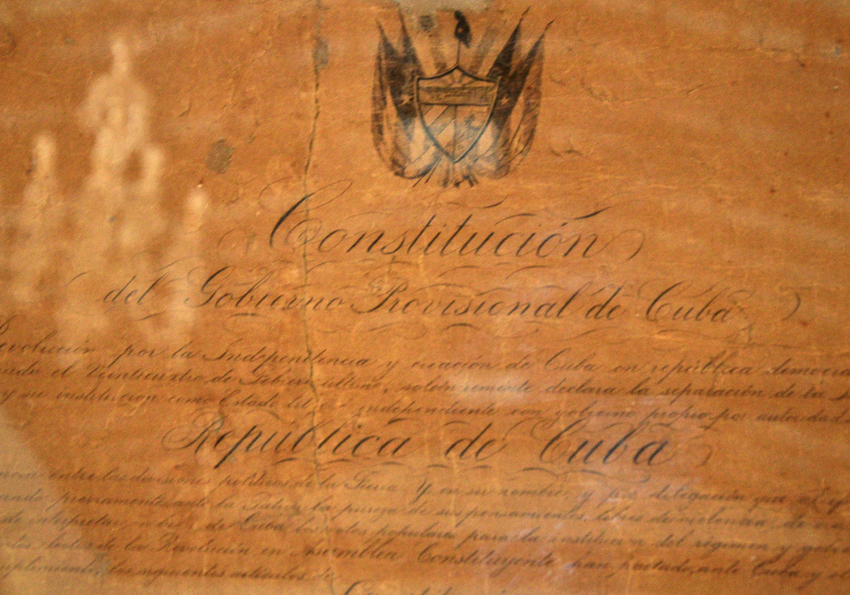 Constitución
del Gobierno Provisional de Cuba
Revolución por la Independencia y creación de Cuba en república democrá
el Veinticuatro de Febrero último, solemnemente declara la separación de la
y su institución como Estado libre independiente con gobierno propio por autoridad
República de Cuba
entre las divisiones políticas de la Tierra Y en su nombre y por delegación que al ef
ante la Patria la pureza de sus pensamientos, libres de violencia, de
de interpretar de Cuba los votos populares para la institución del régimen y gobie
de la Revolución en Asamblea Constituyente han pactado, ante Cuba y el
los siguientes artículos de